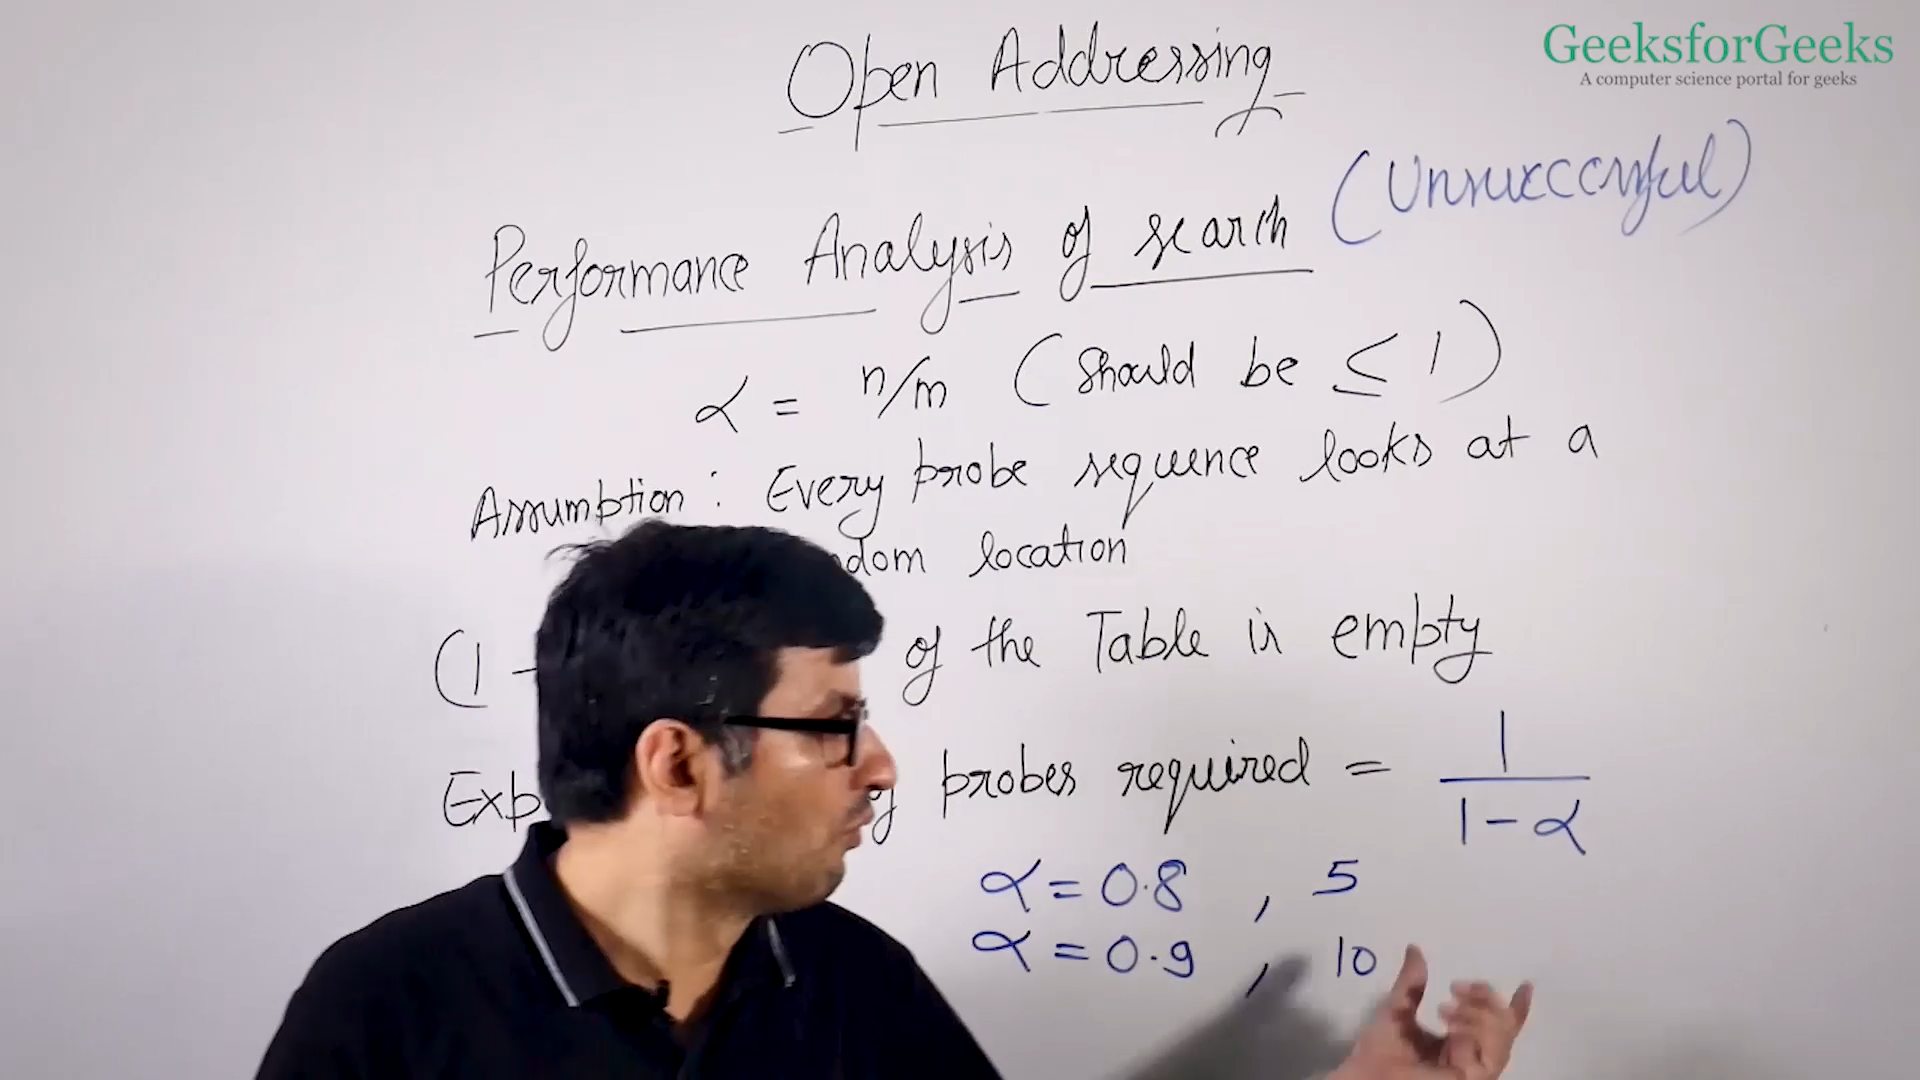 GeeksforGeeks
A computer science portal for geeks
Open Addressing
(Unsuccessful)
Performance Analysis of search
α = n/m (should be ≤ 1)
Assumption : Every probe sequence looks at a
location
(1 - of the Table is empty
of probes required = 1/(1-α)
α = 0.8 , 5
α = 0.9 , 10